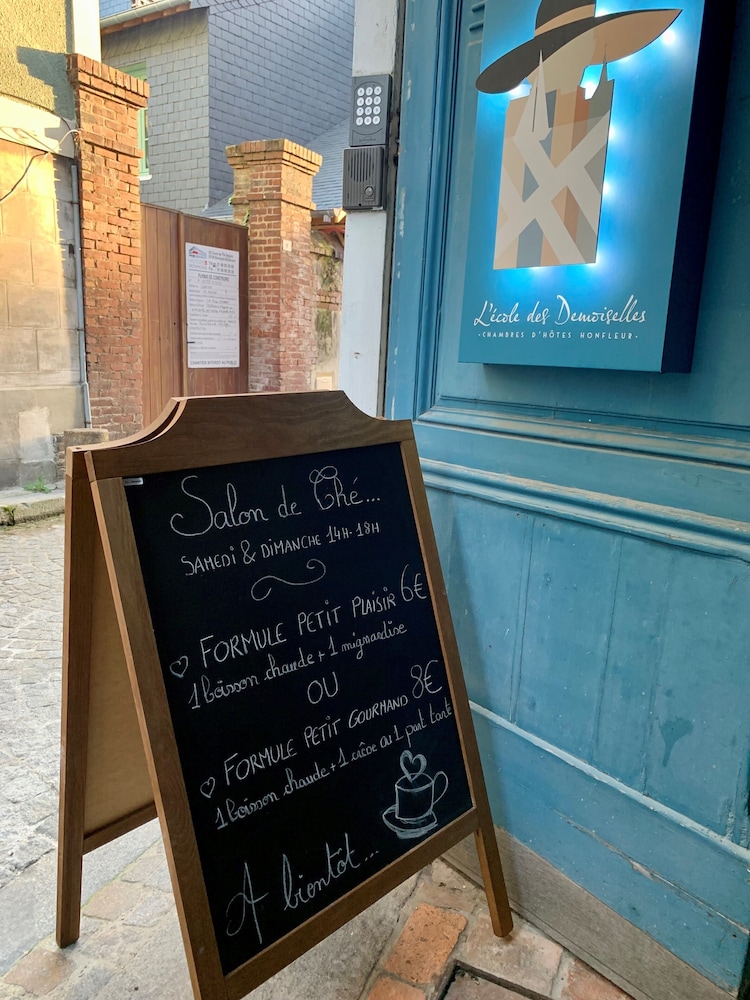 L'école des Demoiselles
·CHAMBRES D'HÔTES HONFLEUR·
PERMIS DE CONSTRUIRE
CHANTIER INTERDIT AU PUBLIC
Salon de Thé...
SAMEDI & DIMANCHE 14H-18H
FORMULE PETIT PLAISIR 6€
1 boisson chaude + 1 mignardise
OU
FORMULE PETIT GOURMAND 8€
1 boisson chaude + 1 crêpe ou 1 part tarte
A bientôt...